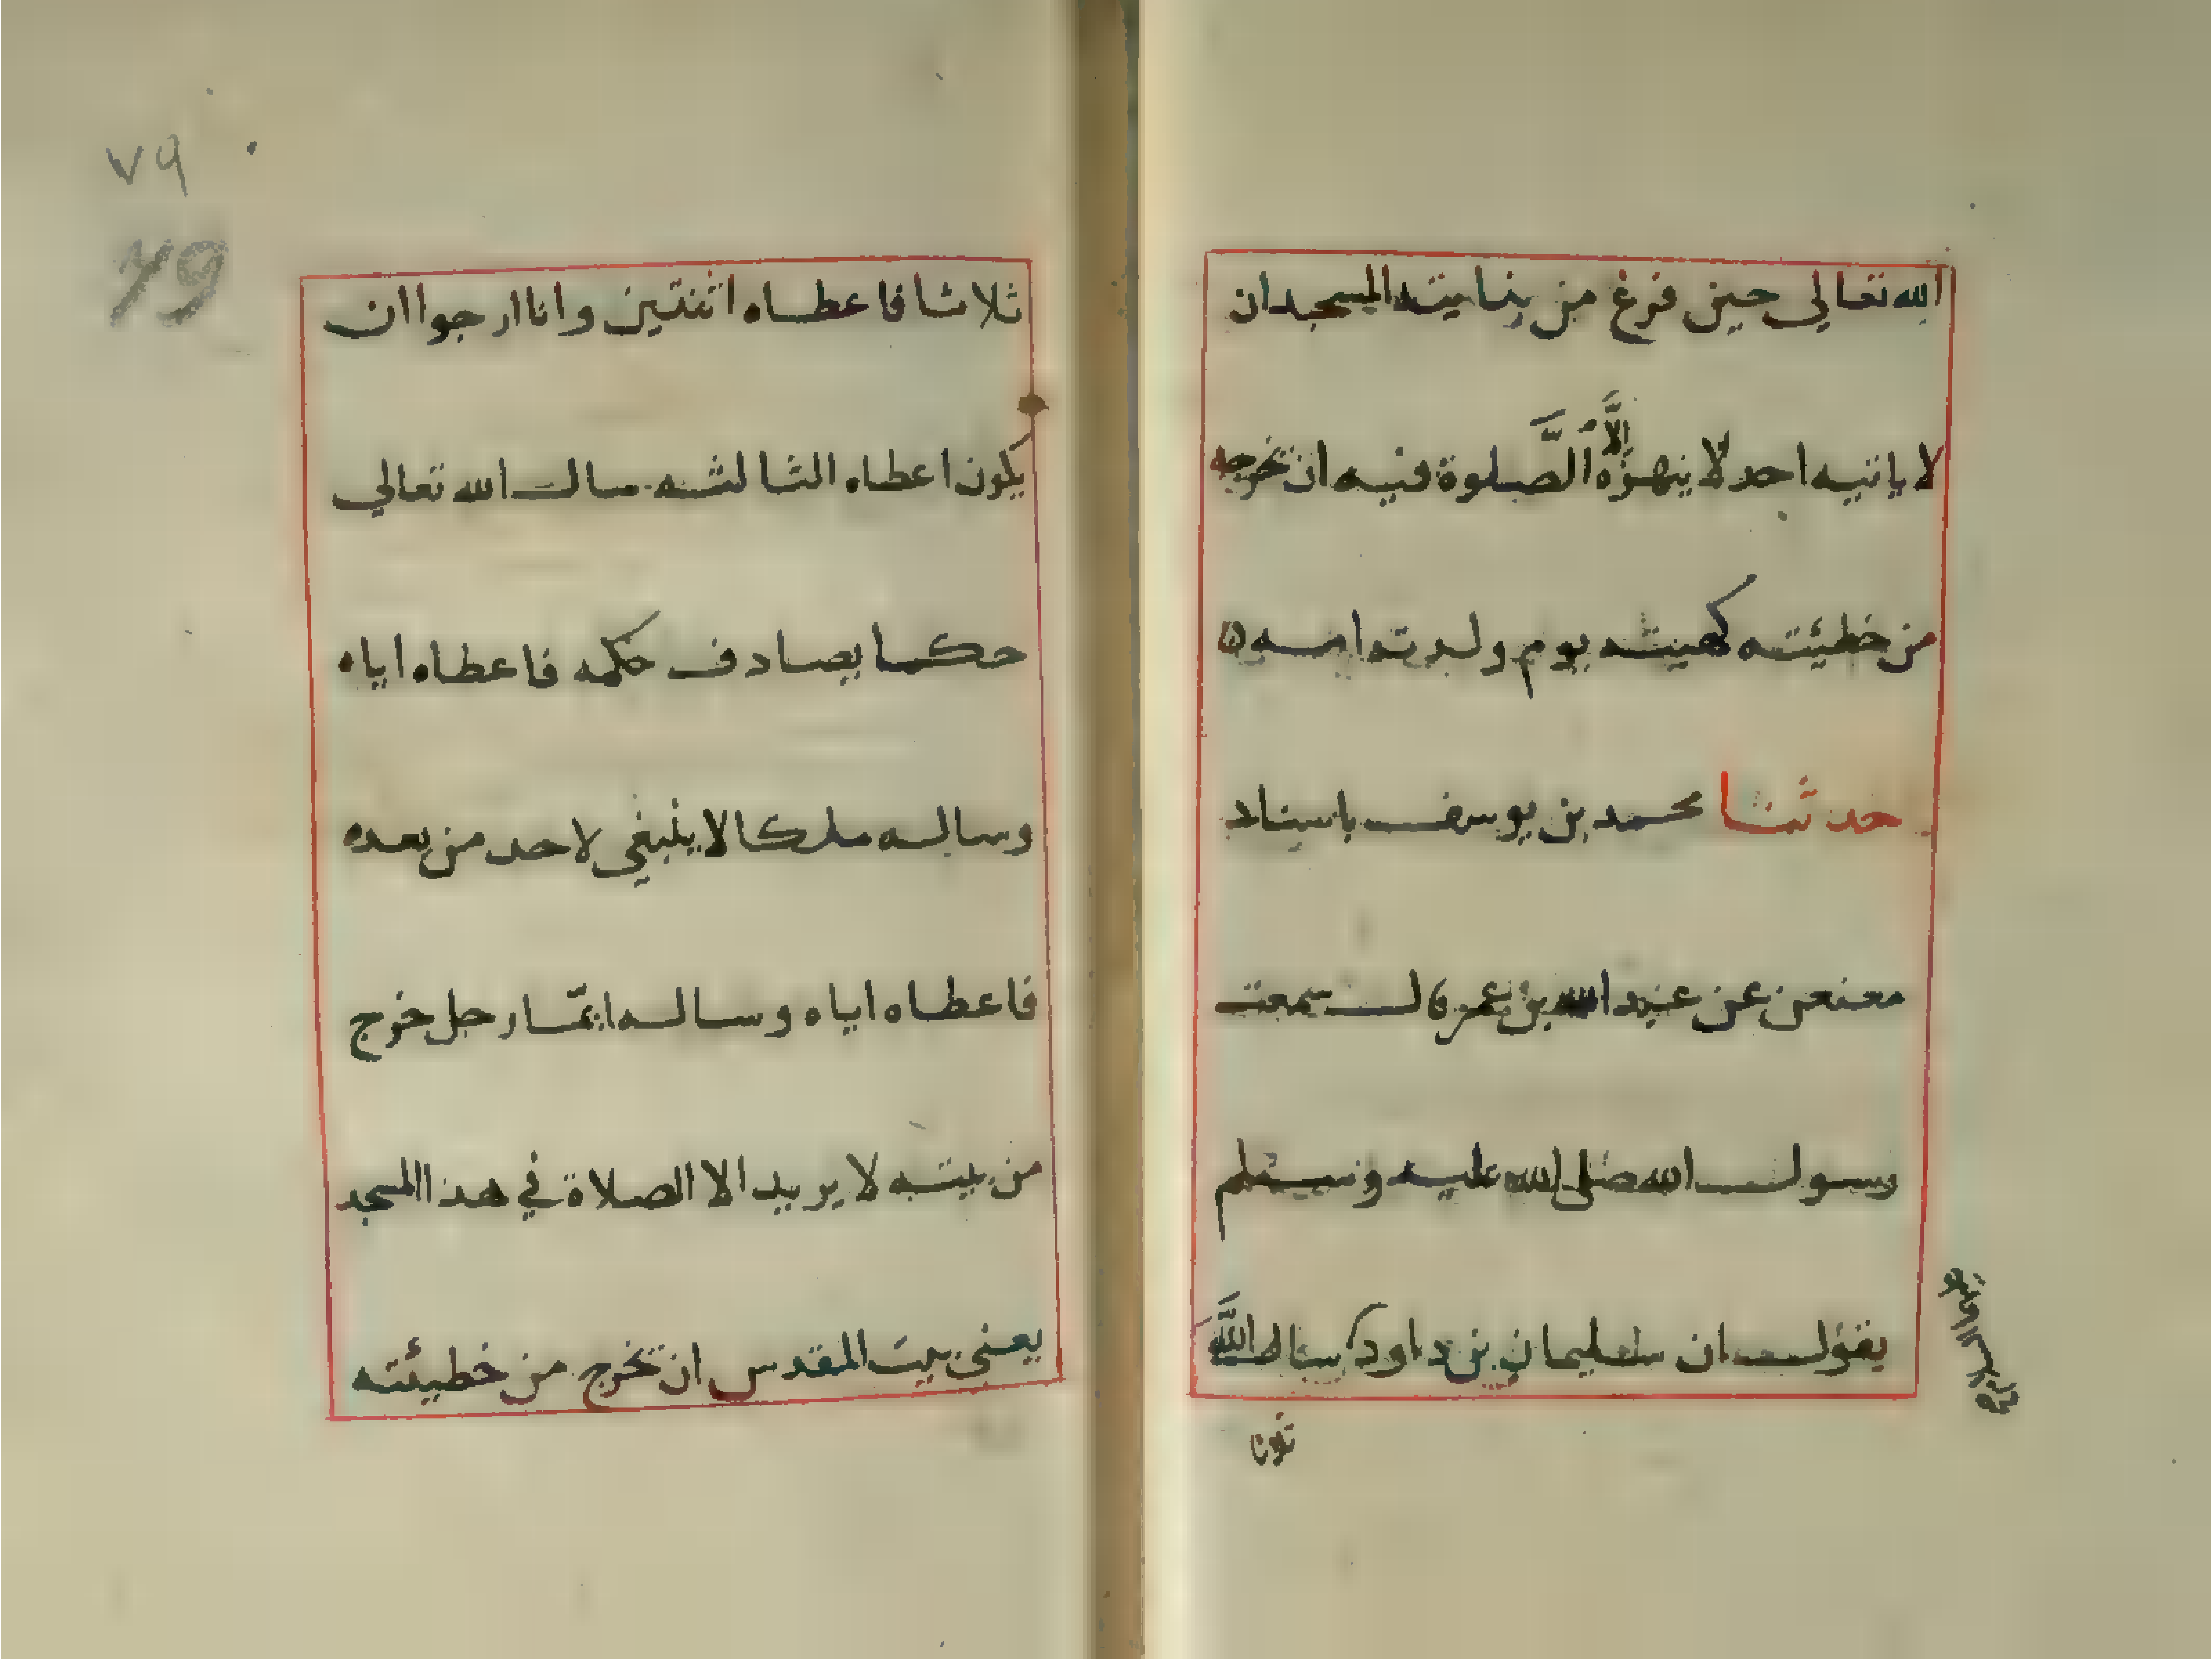 الله تعالي حين فرغ من بنايته المسجد ان
لا ياتيه احد لا ينهزه إلاَّ الصَّلوة فيه ان تخرجه
من خطيئته كهيئته يوم ولدته امه
حدثنا محمد بن يوسف باسناد
معنعن عن عبد الله بن عمر قال سمعت
رسول الله صلى الله عليه وسلم
يقول ان سليمان بن داود سال اللَّه
ثلاثا
٧٩
79
ثلاثا فاعطاه اثنتين وانا ارجوا ان
يكون اعطاه الثالثه سال الله تعالي
حكما يصادف حكمه فاعطاه اياه
وساله ملكا لا ينبغي لاحد من بعده
فاعطاه اياه وساله ايمّا رجل خرج
من بيته لا يريد الا الصلاة في هذا المسجد
يعني بيت المقدس ان تخرج من خطيئته